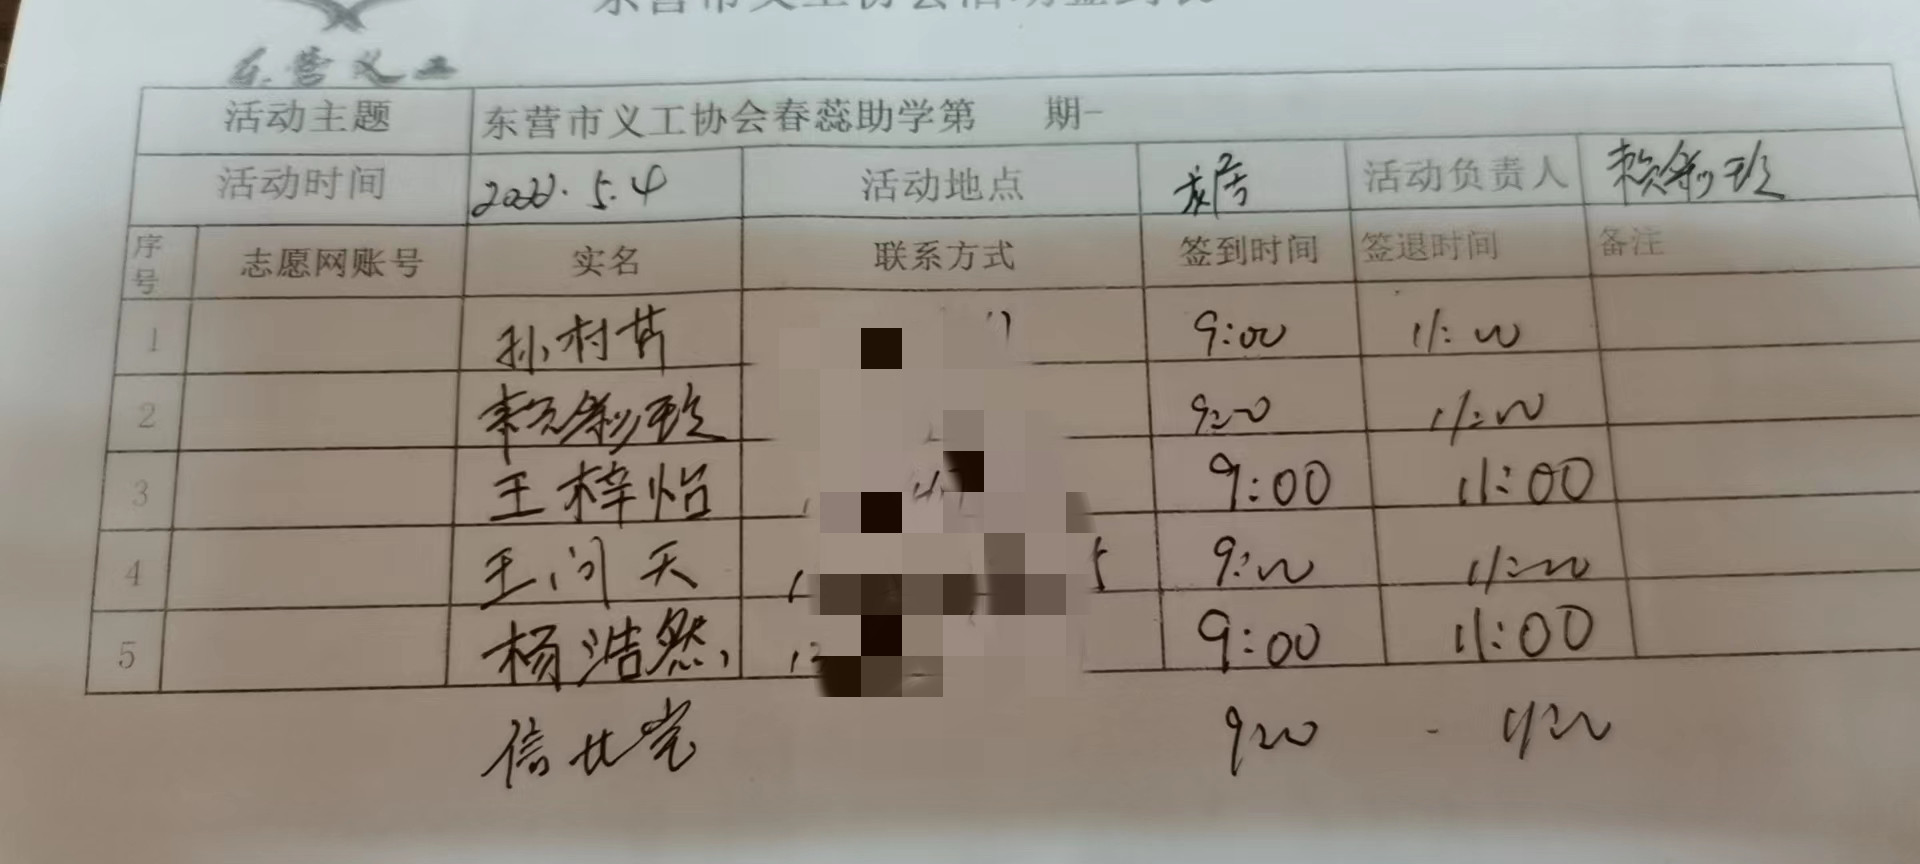 东营市义工协会活动签到表
东营义工
活动主题 东营市义工协会春蕊助学第 期-
活动时间 2022.5.4 活动地点 活动负责人
序号 志愿网账号 实名 联系方式 签到时间 签退时间 备注
1 孙村芹 9:00 11:00
2 9:00 11:00
3 王梓怡 9:00 11:00
4 王问天 9:00 11:00
5 杨浩然 9:00 11:00
信 9:00 - 11:00